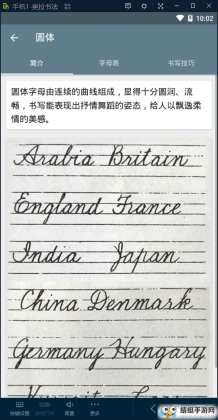 手机1-奥拉书法
10:02
圆体
简介 字母表 书写技巧
圆体字母由连续的曲线组成，显得十分圆润、流
畅，书写能表现出抒情舞蹈的姿态，给人以飘逸柔
情的美感。
Arabia Britain
England France
India Japan
China Denmark
Germany Hungary
按键设置 音量 更多
蜻蜓手游网